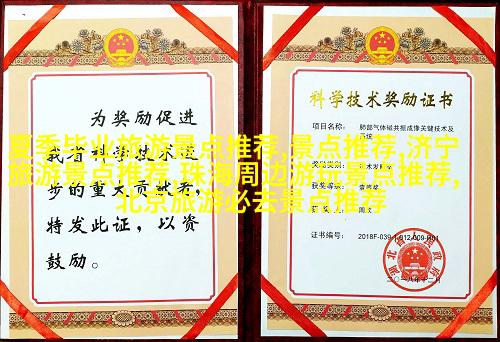 为奖励促进
我省科学技术进
步的重大贡献者，
特发此证，以资
鼓励。
科学技术奖励证书
项目名称： 肺部气体磁共振成像关键技术及
系统
奖励类别：
获奖等级： 壹等奖
证书编号： 2018F-039-1-012-009-R01
湖北省人民政府
二〇一八年十二月
夏季毕业旅游景点推荐,景点推荐,济宁
旅游景点推荐,珠海周边游景点推荐,
北京旅游必去景点推荐